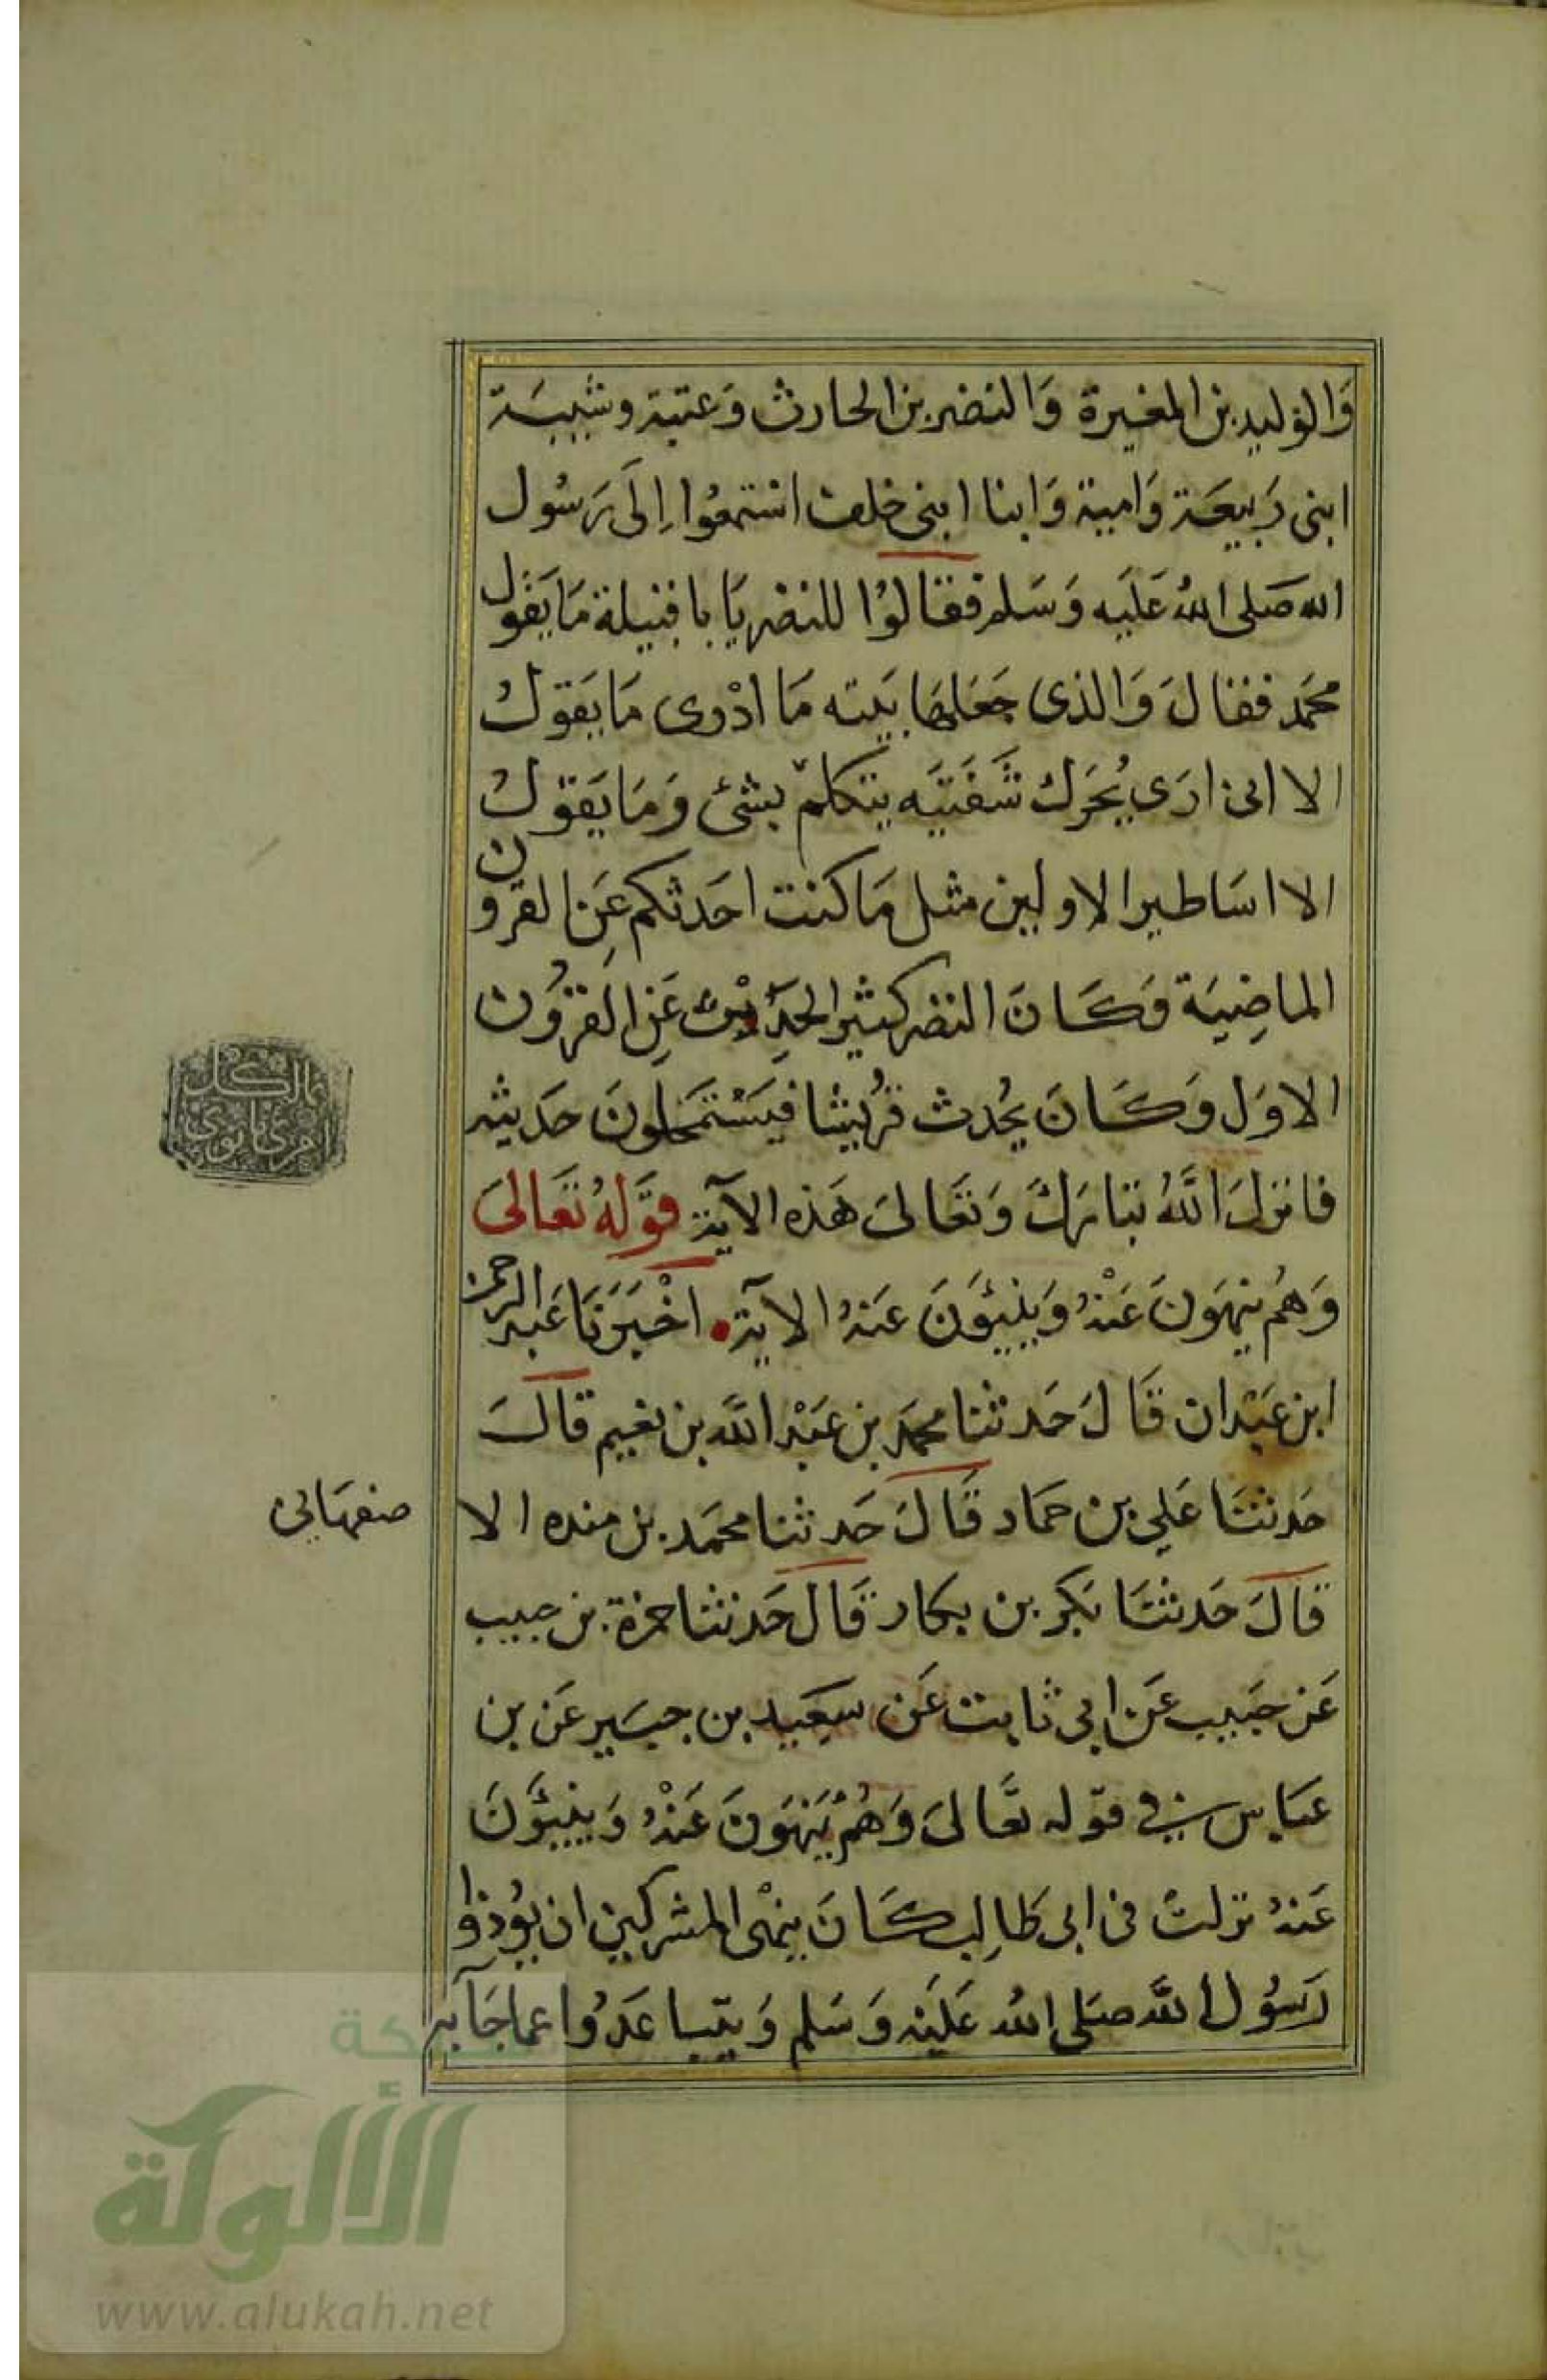 وَالوليد بن المغيرة وَالنضر بن الحارث وَعتبة وشيبَة
ابنى رَبيعَة وَامية وَابنا ابنى خلف استمعُوا اِلَى رَسُول
الله صَلى اللهُ عَليَه وَسَلم فقالوُا للنضر يَا با قتيلة مَا يَقول
محَمد فقال وَالذى جَعَلهَا بَيته مَا ادْرى مَا يَقول
الا انى ارَى يُحَرك شَفَتيَه يتكلم بشئ وَمَا يَقول
الا اسَاطير الاولين مثل مَا كنت احَدثكم عَن القرون
الماضِيَة وَكَانَ النضر كثير الحَدِيث عَن القرُون
الاوَل وَكَانَ يُحدث قرُيشا فيَسْتَمحلونَ حَديثه
فانزل اللَّهُ تبَارَكَ وَتَعَالىَ هَذه الآية قَوْلهُ تَعَالىَ
وَهُم ينهَونَ عَنْهُ وَيَنئونَ عَنهُ الآية اخْبَرَنَا عَبد الرحمن
ابن عَبْدان قَالَ حَدثنا محمَد بن عَبْد اللَّه بن نعيم قال
حَدثنَا عَلي بن حمَاد قَالَ حَدثنا محمَد بن منده الا
صفهَانى
قالَ حَدثنَا بَكر بن بكار قَال حَدثنا حمزة بن حبيب
عَن حَبيب عَن ابى ثابت عَن سَعيد بن جبَير عَن بن
عبَاس فى قوله تَعَالىَ وَهُمْ يَنْهَوَنَ عَنْهُ وَيَنئَونَ
عَنهُ نزلتْ فى ابى طَالِب كَانَ ينهْى المشركين ان يؤُذوا
رَسُول اللَّه صَلى اللهُ عَليَه وَسَلم وَيتبَاعَدوُا عما جَآ به
شبكة
الألوكة
www.alukah.net